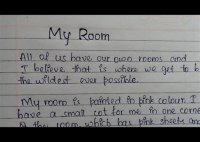 My Room
All of us have our own rooms and
I believe that is where we get to b
the wildest ever possible.
My room is painted in pink colour. I
have a small cot for me in one corne
the room, which has pink sheets an